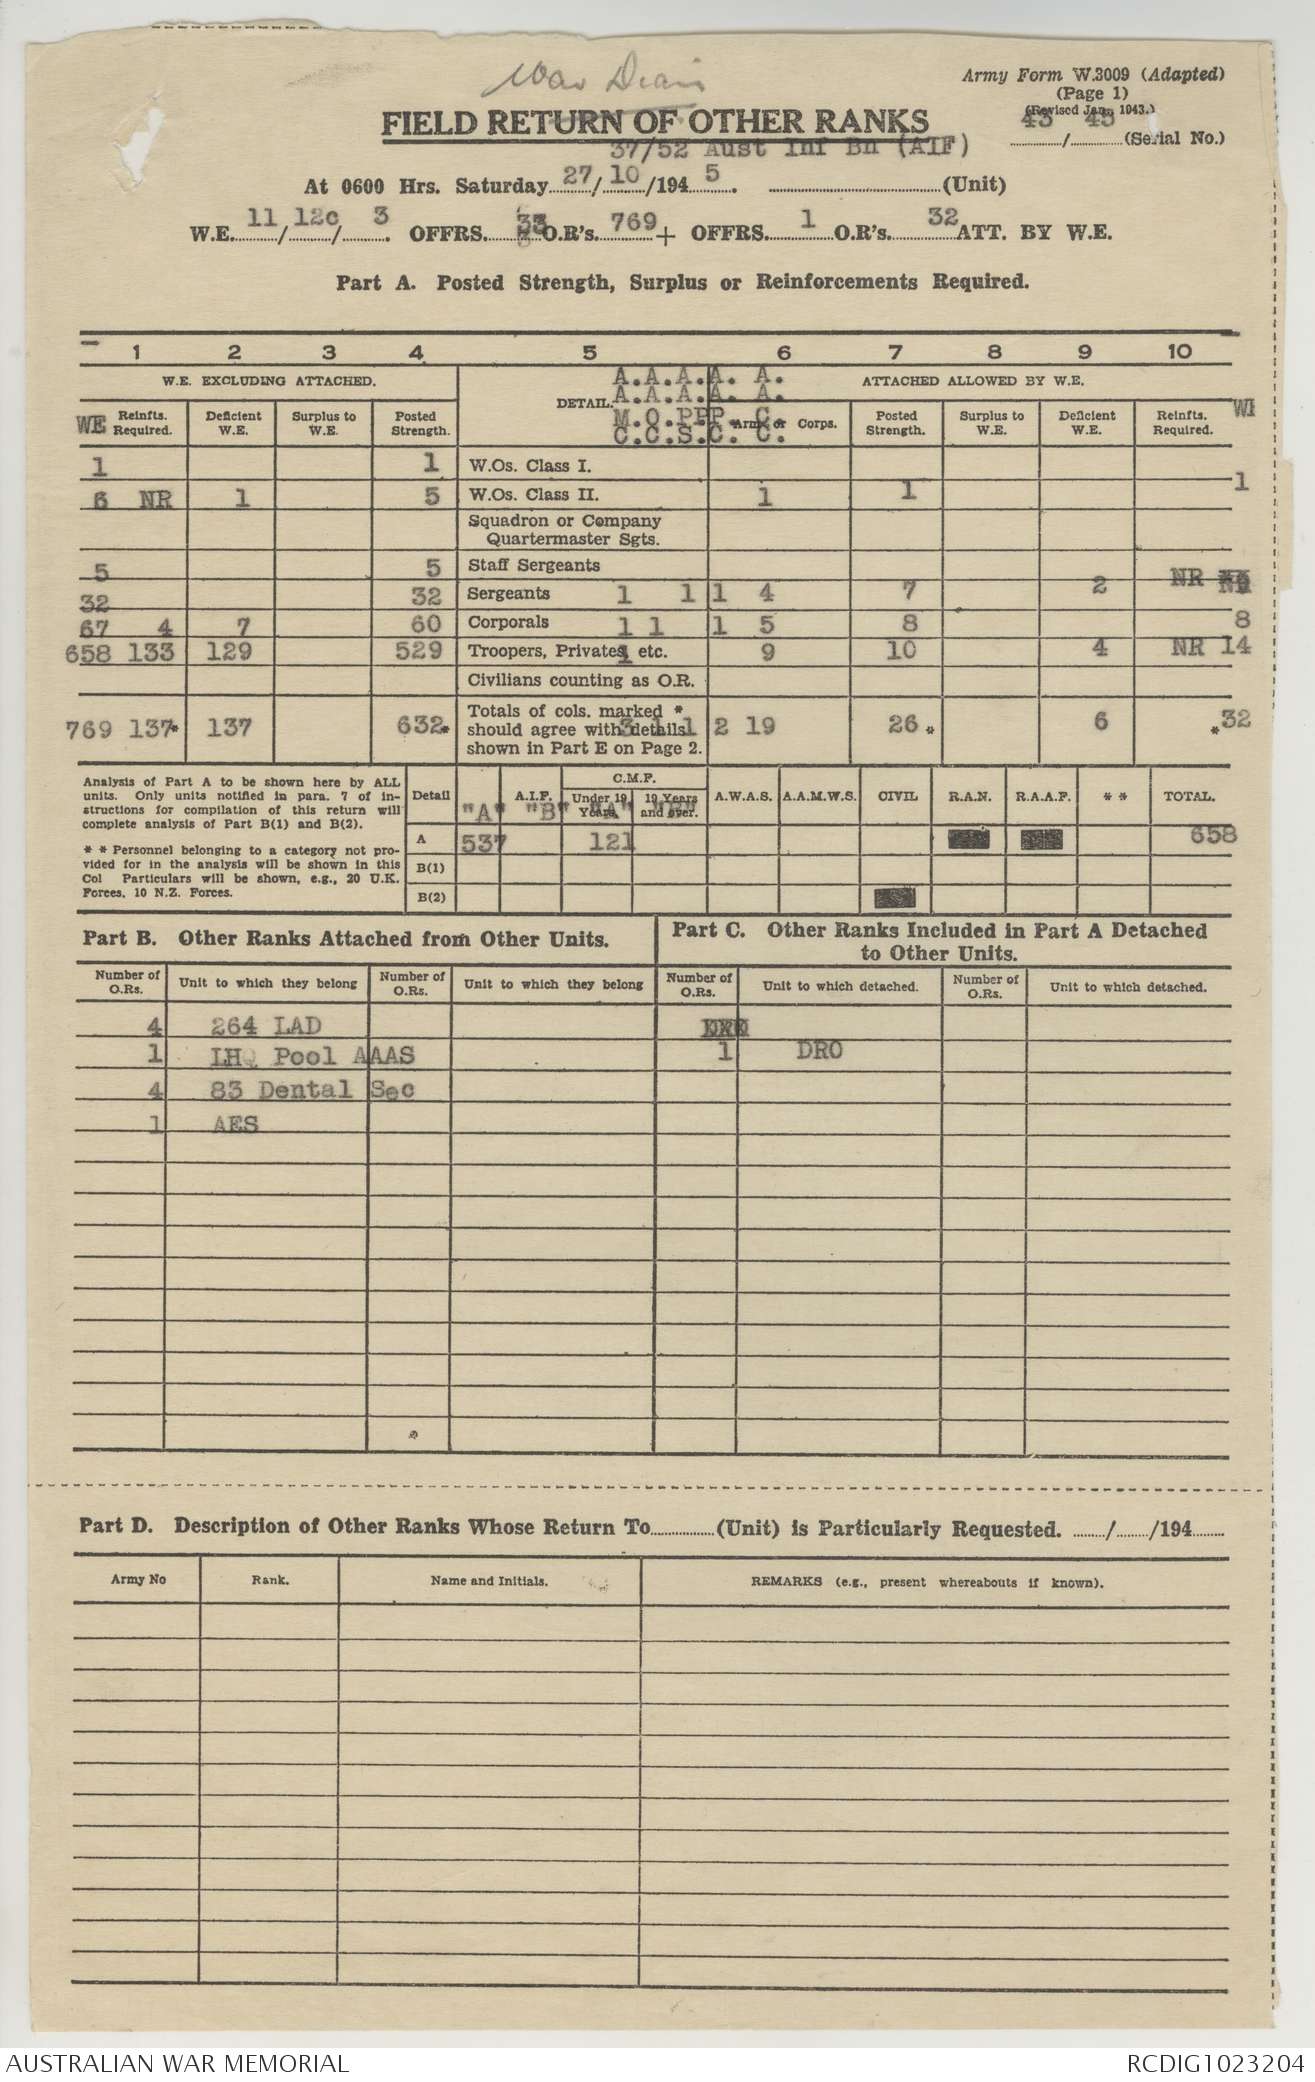 War Diary
Army Form W.3009 (Adapted)
(Page 1)
(Revised Jan. 1943.)
FIELD RETURN OF OTHER RANKS
43 / 45 (Serial No.)
37/52 Aust Inf Bn (AIF)
At 0600 Hrs. Saturday 27/10/1945. (Unit)
W.E. 11/12c/3. OFFRS. 33 O.R's. 769 + OFFRS. 1 O.R's. 32 ATT. BY W.E.
Part A. Posted Strength, Surplus or Reinforcements Required.
1 2 3 4 5 6 7 8 9 10
W.E. EXCLUDING ATTACHED. DETAIL. A.A.A.A. A. ATTACHED ALLOWED BY W.E.
A.A.A.A. A.
WE Reinfts. Required. Deficient W.E. Surplus to W.E. Posted Strength. M.O.PPP. C. Arm or Corps. Posted Strength. Surplus to W.E. Deficient W.E. Reinfts. Required. WE
C.C.S.C. C.
1 1 W.Os. Class I.
6 NR 1 5 W.Os. Class II. 1 1 1
Squadron or Company Quartermaster Sgts.
5 5 Staff Sergeants
32 32 Sergeants 1 1 1 4 7 2 NR
67 4 7 60 Corporals 1 1 1 5 8 8
658 133 129 529 Troopers, Privates, etc. 1 9 10 4 NR 14
Civilians counting as O.R.
769 137* 137 632* Totals of cols. marked * should agree with details shown in Part E on Page 2. 3 1 1 2 19 26* 6 *32
Analysis of Part A to be shown here by ALL
units. Only units notified in para. 7 of in-
structions for compilation of this return will
complete analysis of Part B(1) and B(2).
* * Personnel belonging to a category not pro-
vided for in the analysis will be shown in this
Col Particulars will be shown, e.g., 20 U.K.
Forces, 10 N.Z. Forces.
Detail A.I.F. C.M.F. A.W.A.S. A.A.M.W.S. CIVIL R.A.N. R.A.A.F. * * TOTAL.
Under 19 Years. 19 Years and over.
"A" "B" "A" "B"
A 537 121 658
B(1)
B(2)
Part B. Other Ranks Attached from Other Units.
Part C. Other Ranks Included in Part A Detached
to Other Units.
Number of O.Rs. Unit to which they belong Number of O.Rs. Unit to which they belong Number of O.Rs. Unit to which detached. Number of O.Rs. Unit to which detached.
4 264 LAD
1 LHQ Pool AAAS 1 DRO
4 83 Dental Sec
1 AES
Part D. Description of Other Ranks Whose Return To (Unit) is Particularly Requested. / /194
Army No Rank. Name and Initials. REMARKS (e.g., present whereabouts if known).
AUSTRALIAN WAR MEMORIAL RCDIG1023204